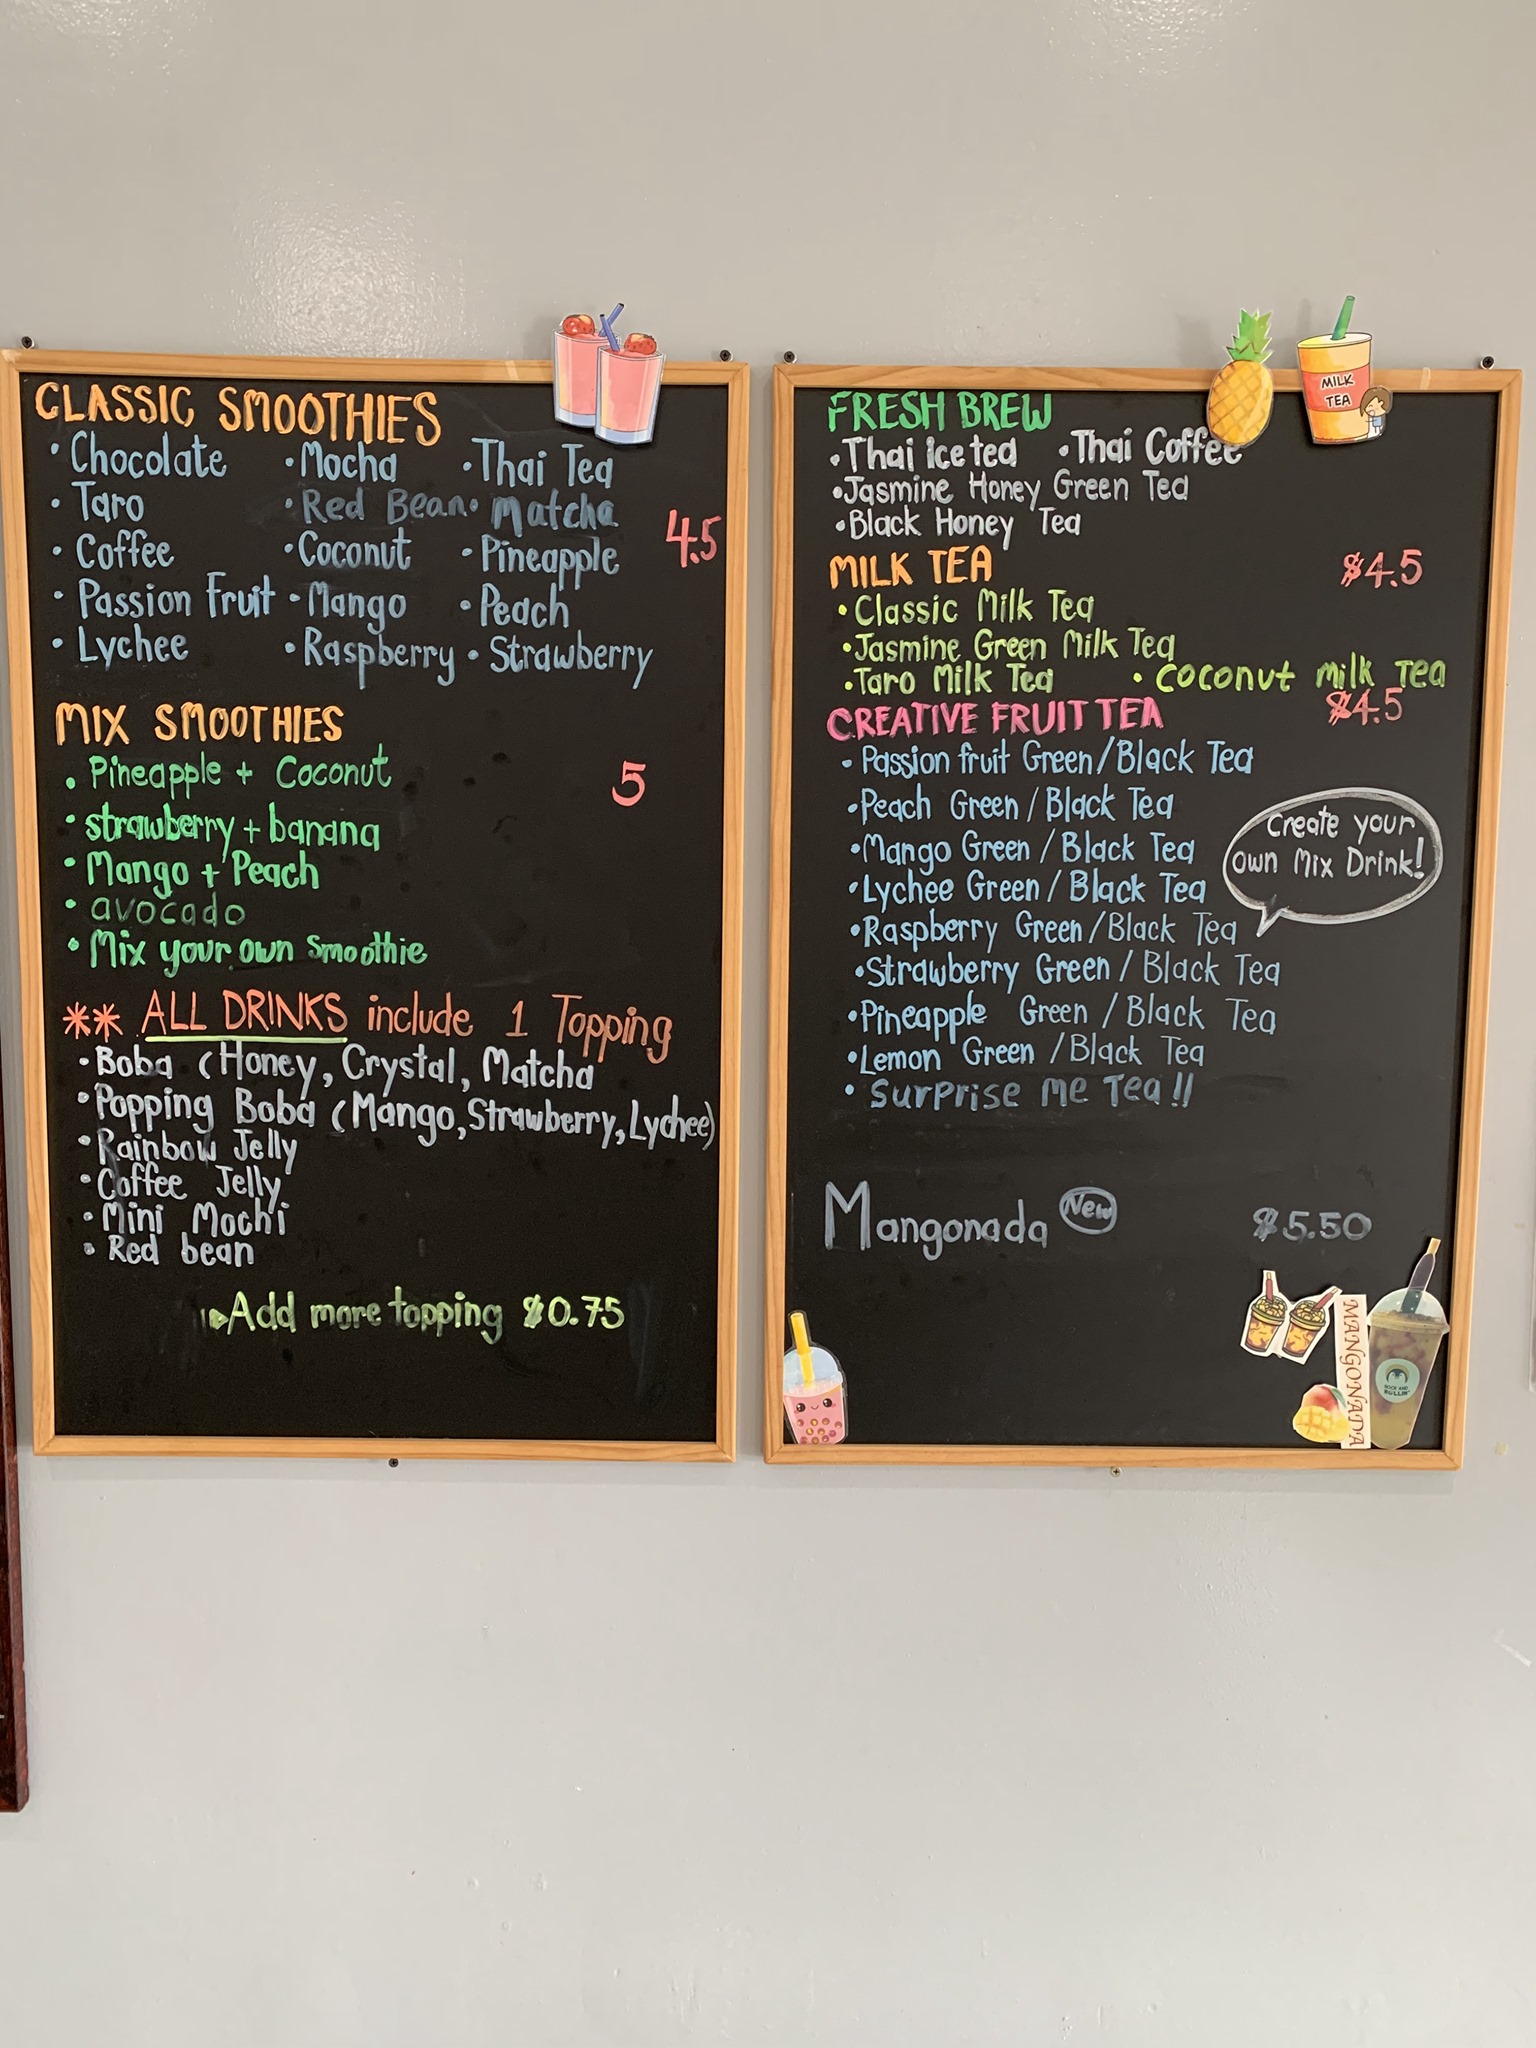 CLASSIC SMOOTHIES
• Chocolate • Mocha • Thai Tea
• Taro • Red Bean • Matcha
4.5
• Coffee • Coconut • Pineapple
• Passion Fruit • Mango • Peach
• Lychee • Raspberry • Strawberry
MIX SMOOTHIES
• Pineapple + Coconut
5
• strawberry + banana
• Mango + Peach
• avocado
• Mix your own smoothie
** ALL DRINKS include 1 Topping
• Boba (Honey, Crystal, Matcha
• Popping Boba (Mango, Strawberry, Lychee)
• Rainbow Jelly
• Coffee Jelly
• Mini Mochi
• Red bean
Add more topping $0.75
MILK
TEA
FRESH BREW
• Thai Iceted • Thai Coffee
• Jasmine Honey Green Tea
• Black Honey Tea
MILK TEA $4.5
• Classic Milk Tea
• Jasmine Green Milk Tea
• Taro Milk Tea • Coconut milk Tea
CREATIVE FRUIT TEA $4.5
• Passion fruit Green/Black Tea
• Peach Green / Black Tea
• Mango Green / Black Tea
• Lychee Green / Black Tea
• Raspberry Green/Black Tea
• Strawberry Green / Black Tea
• Pineapple Green / Black Tea
• Lemon Green / Black Tea
• Surprise Me Tea!!
Create your
own Mix Drink!
Mangonada New $5.50
MANGONADA
ROCK AND
ROLLIN'